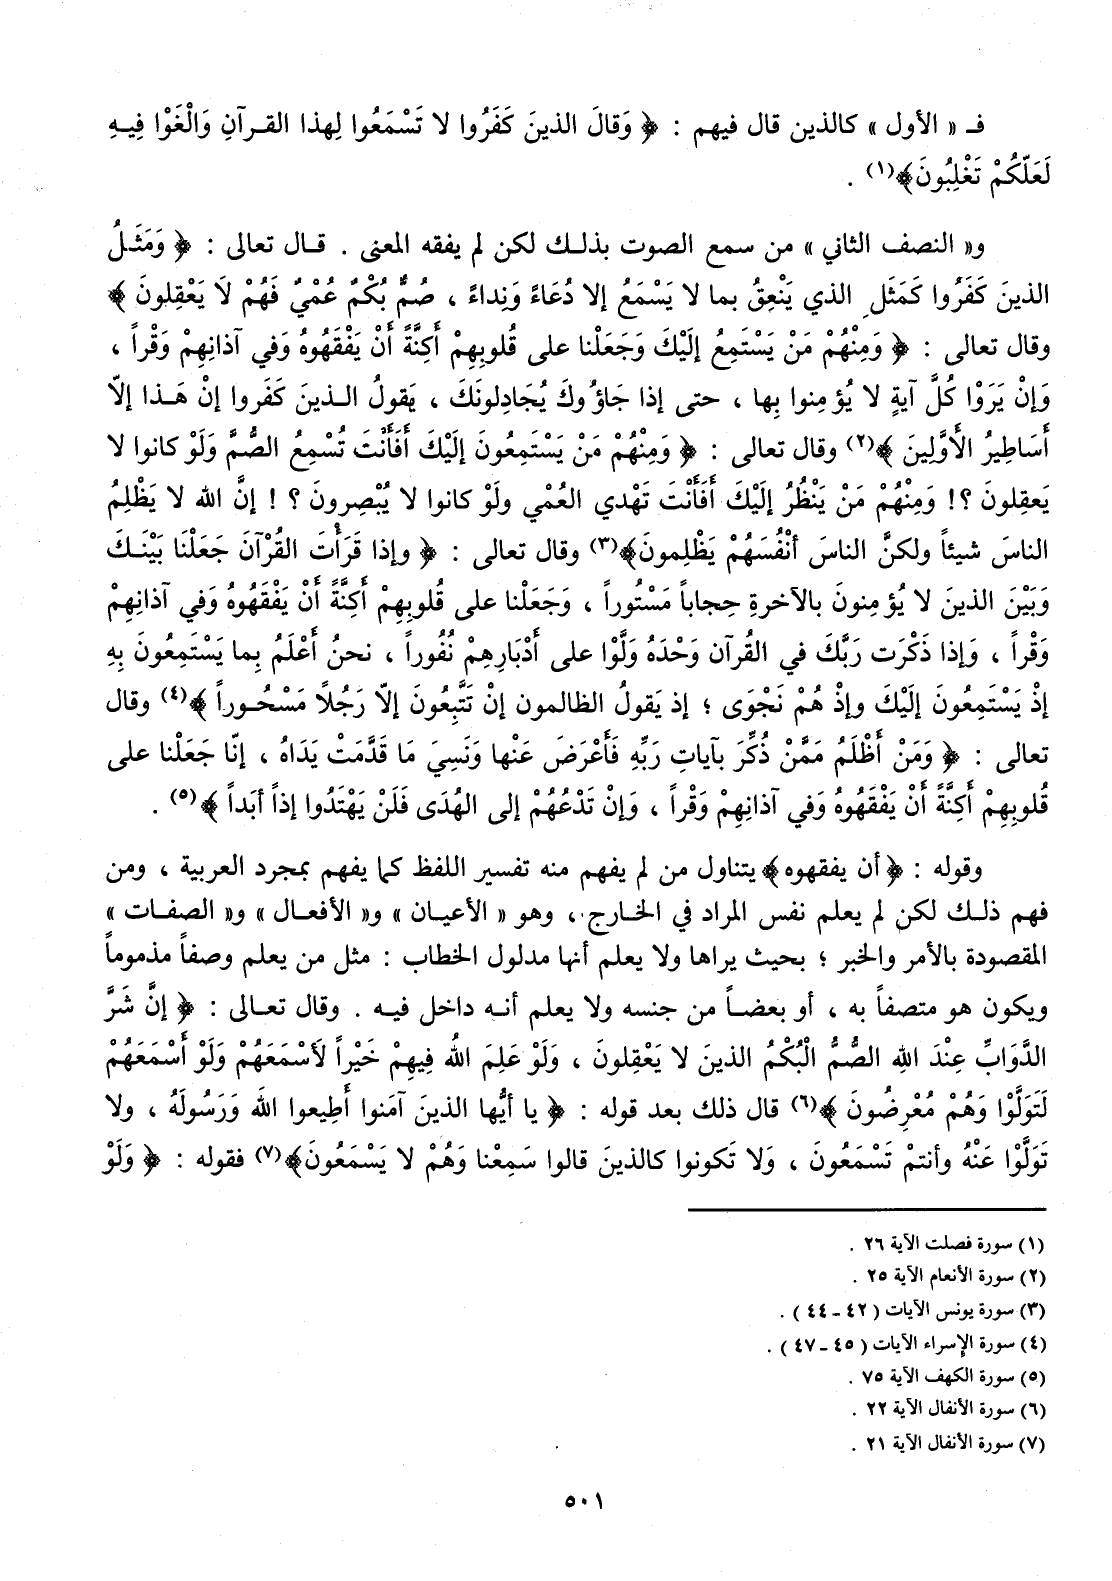 فـ « الأول » كالذين قال فيهم : ﴿ وَقالَ الذينَ كَفَرُوا لا تَسْمَعُوا لِهذا القـرآنِ وَالْغَوْا فِيـهِ
لَعَلّكُمْ تَغْلِبُونَ﴾(١) .
و« النصف الثاني » من سمع الصوت بذلـك لكن لم يفقه المعنى . قـال تعالى : ﴿ وَمَثَـلُ
الذينَ كَفَرُوا كَمَثَلِ الذي يَنْعِقُ بما لا يَسْمَعُ إلا دُعَاءً وَنِداءً ، صُمٌّ بُكْمٌ عُمْيٌ فَهُمْ لَا يَعْقِلونَ ﴾
وقال تعالى : ﴿ وَمِنْهُمْ مَنْ يَسْتَمِعُ إلَيْكَ وَجَعَلْنا على قُلوبِهِمْ أكِنَّةً أنْ يَفْقَهُوهُ وَفي آذانِهِمْ وَقْراً ،
وَإنْ يَرَوْا كُلَّ آيةٍ لا يُؤمِنوا بِها ، حتى إذا جَاؤُوكَ يُجَادِلونَكَ ، يَقولُ الـذينَ كَفَروا إنْ هَـذا إلاّ
أَسَاطِيرُ الأَوَّلِينَ ﴾(٢) وقال تعالى : ﴿ وَمِنْهُمْ مَنْ يَسْتَمِعُونَ إلَيْكَ أفَأنْتَ تُسْمِعُ الصُّمَّ وَلَوْ كانوا لا
يَعقِلونَ ؟! وَمِنْهُمْ مَنْ يَنْظُرُ إلَيْكَ أَفَأَنْتَ تَهْدي العُمْي ولَوْ كانوا لا يُبْصِرونَ ؟ ! إنَّ الله لا يَظْلِمُ
الناسَ شيئاً ولكنَّ الناسَ أنْفُسَهُمْ يَظْلِمونَ﴾(٣) وقال تعالى : ﴿ وإذا قَرَأتَ القُرْآنَ جَعَلْنَا بَيْنَـكَ
وَبَيْنَ الذينَ لا يُؤمِنونَ بالآخرةِ حِجاباً مَسْتُوراً ، وَجَعَلْنا على قُلوبِهِمْ أَكِنَّةً أَنْ يَفْقَهُوهُ وَفي آذانِهِمْ
وَقْراً ، وَإذا ذَكَرْت رَبَّكَ في القُرآن وَحْدَهُ وَلَّوْا على أدْبَارِهِمْ نُفُوراً ، نحنُ أعْلَمُ بِما يَسْتَمِعُونَ بِهِ
إذْ يَسْتَمِعُونَ إلَيْكَ وإذْ هُمْ نَجْوَى ؛ إذ يَقولُ الظالمون إنْ تَتَّبِعُونَ إلاّ رَجُلاً مَسْحُـوراً ﴾(٤) وقال
تعالى : ﴿ وَمَنْ أظْلَمُ مَمَّنْ ذُكِّرَ بآياتِ رَبِّهِ فَأعْرَضَ عَنْها وَنَسِيَ مَا قَدَّمَتْ يَدَاهُ ، إنّا جَعَلْنا على
قُلوبِهِمْ أكِنَّةً أنْ يَفْقَهُوهُ وَفي آذانِهِمْ وَقْراً ، وَإنْ تَدْعُهُمْ إلى الهُدَى فَلَنْ يَهْتَدُوا إذاً أبَداً ﴾(٥) .
وقوله : ﴿أن يفقهوه﴾ يتناول من لم يفهم منه تفسير اللفظ كما يفهم بمجرد العربية ، ومن
فهم ذلـك لكن لم يعلم نفس المراد في الخـارج ، وهو « الأعيـان » و« الأفعـال » و« الصفـات »
المقصودة بالأمر والخبر ؛ بحيث يراها ولا يعلم أنها مدلول الخطاب : مثل من يعلم وصفاً مذموماً
ويكون هو متصفاً به ، أو بعضـاً من جنسه ولا يعلم أنـه داخل فيـه . وقال تعـالى : ﴿ إنَّ شَرَّ
الدَّوَابِّ عِنْدَ اللهِ الصُّمُّ الْبُكْمُ الذينَ لا يَعْقِلونَ ، وَلَوْ عَلِمَ اللهُ فِيهِمْ خَيْراً لَأسْمَعَهُمْ وَلَوْ أَسْمَعَهُمْ
لَتَوَلَّوْا وَهُمْ مُعْرِضُونَ ﴾(٦) قال ذلك بعد قوله : ﴿ يا أيُّها الذينَ آمَنوا أطِيعوا الله وَرَسُولَهُ ، ولا
تَوَلَّوْا عَنْهُ وأنتمْ تَسْمَعُونَ ، وَلا تَكونوا كالذينَ قالوا سَمِعْنا وَهُمْ لا يَسْمَعُونَ﴾(٧) فقوله : ﴿ وَلَوْ
(١) سورة فصلت الآية ٢٦ .
(٢) سورة الأنعام الآية ٢٥ .
(٣) سورة يونس الآيات ( ٤٢ - ٤٤ ) .
(٤) سورة الإسراء الآيات ( ٤٥ - ٤٧ ) .
(٥) سورة الكهف الآية ٧٥ .
(٦) سورة الأنفال الآية ٢٢ .
(٧) سورة الأنفال الآية ٢١ .
٥٠١